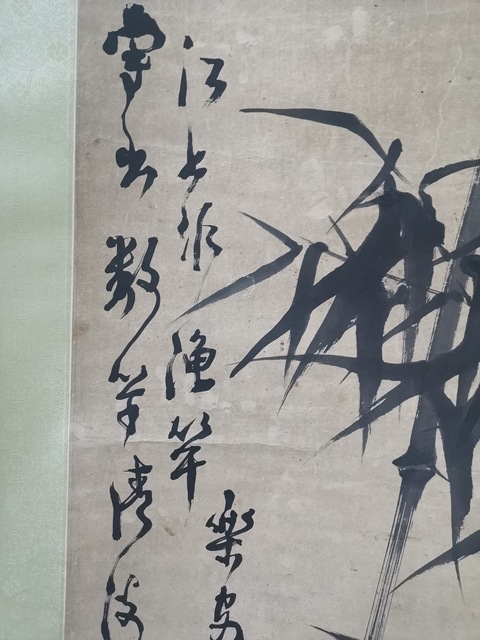 寫出數竿清瘦
江上作漁竿
樂